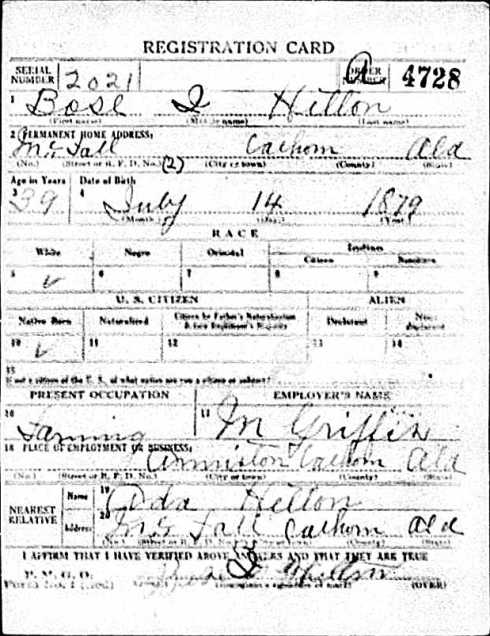 REGISTRATION CARD
SERIAL NUMBER 2021 ORDER NUMBER A 4728
1 Bose I Hilton
(First name) (Middle name) (Last name)
2 PERMANENT HOME ADDRESS:
Calhom Ala
(No.) (Street or R. F. D. No.) (2) (City or town) (County) (State)
Age in Years Date of Birth
3 39 4 July 14 1879
(Month) (Day) (Year)
RACE
White Negro Oriental Indian
Citizen Noncitizen
5 ✓ 6 7 8 9
U. S. CITIZEN ALIEN
Native Born Naturalized Citizen by Father's Naturalization Before Registrant's Majority Declarant Non-declarant
10 ✓ 11 12 13 14
15
If not a citizen of the U. S., of what nation are you a citizen or subject?
PRESENT OCCUPATION EMPLOYER'S NAME
16 Farming 17 Griffin
18 PLACE OF EMPLOYMENT OR BUSINESS:
Anniston Calhom Ala
(No.) (Street or R. F. D. No.) (City or town) (County) (State)
NEAREST RELATIVE Name 19 Ada Hilton
Address 20 Calhom Ala
(No.) (Street or R. F. D. No.) (City or town) (County) (State)
I AFFIRM THAT I HAVE VERIFIED ABOVE AND THAT THEY ARE TRUE
P. M. G. O.
Form No. 1 (Red) (OVER)